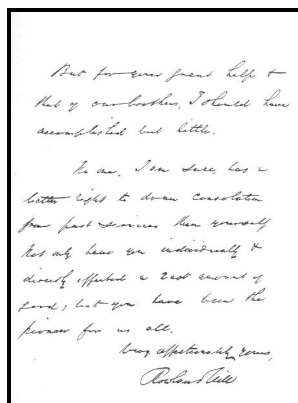 But for your great help &
that of our brothers, I should have
accomplished but little.
No one, I am sure, has a
better right to draw consolation
from past services than yourself
Not only have you individually &
directly effected a vast amount of
good; but you have been the
pioneer for us all.
Very affectionately yours,
Rowland Hill